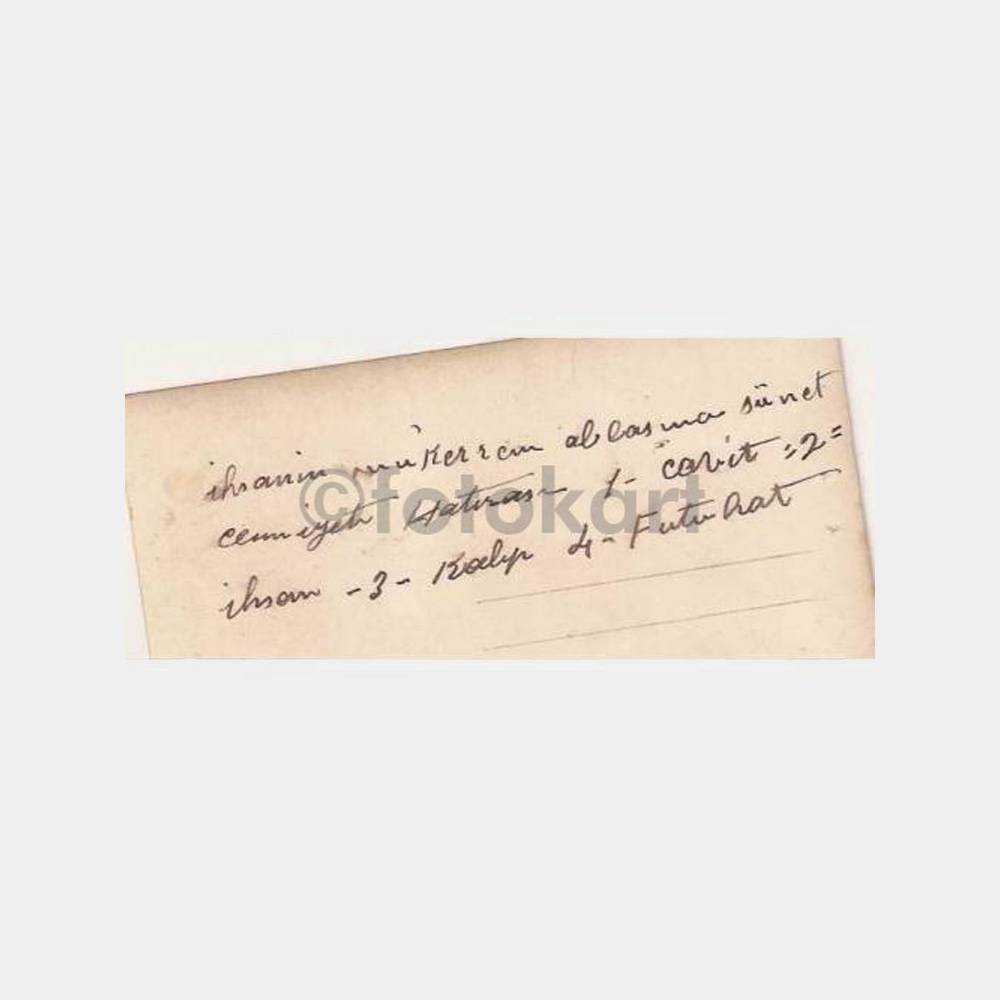 ihsanin mükerrem ablasına sünet
cemiyeti Hatırası 1- cavit =2=
ihsan -3- Kalıp 4- Futuhat
©fotokart